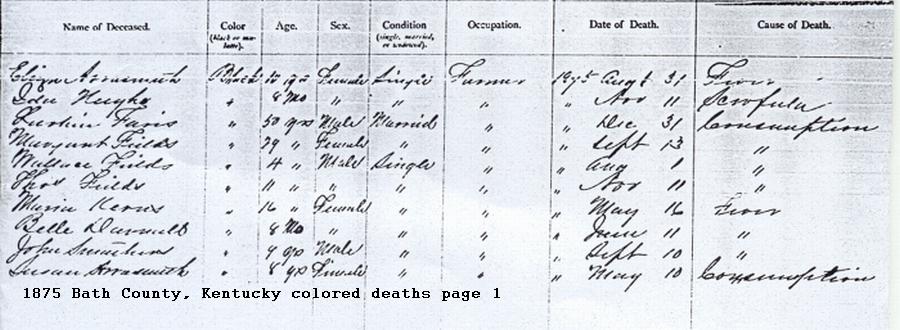 Name of Deceased. Color (black or mulatto). Age. Sex. Condition (single, married, or widowed). Occupation. Date of Death. Cause of Death.
Eliza Arrasmith Black yrs Female Single Farmer 1875 Augt 31 Fever
Hughs " 8 Mo " " " " Nov 11 Scrofula
Faris " 50 yrs Male Married " " Dec 31 Consumption
Margant Fields " 29 " Female " " " Sept 13 "
Wallace Fields " 4 " Male Single " " Aug 1 "
Thos Fields " 11 " " " " " Nov 11 "
Maria Kerns " 16 " Female " " " May 16 Fever
Belle " 8 Mo " " " " June 11 "
John " 9 yrs Male " " " Sept 10 "
Susan Arrasmith " 8 yrs Female " " " May 10 Consumption
1875 Bath County, Kentucky colored deaths page 1